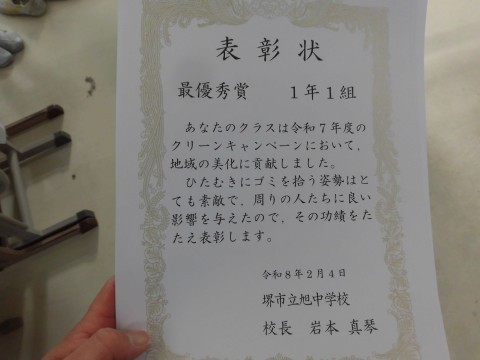 表彰状
最優秀賞　１年１組
あなたのクラスは令和７年度の
クリーンキャンペーンにおいて、
地域の美化に貢献しました。
ひたむきにゴミを拾う姿勢はと
ても素敵で、周りの人たちに良い
影響を与えたので、その功績をた
たえ表彰します。
令和８年２月４日
堺市立旭中学校
校長　岩本 真琴